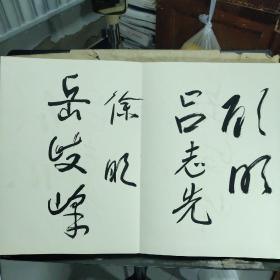 顾明
吕志先
徐明
岳岐峰